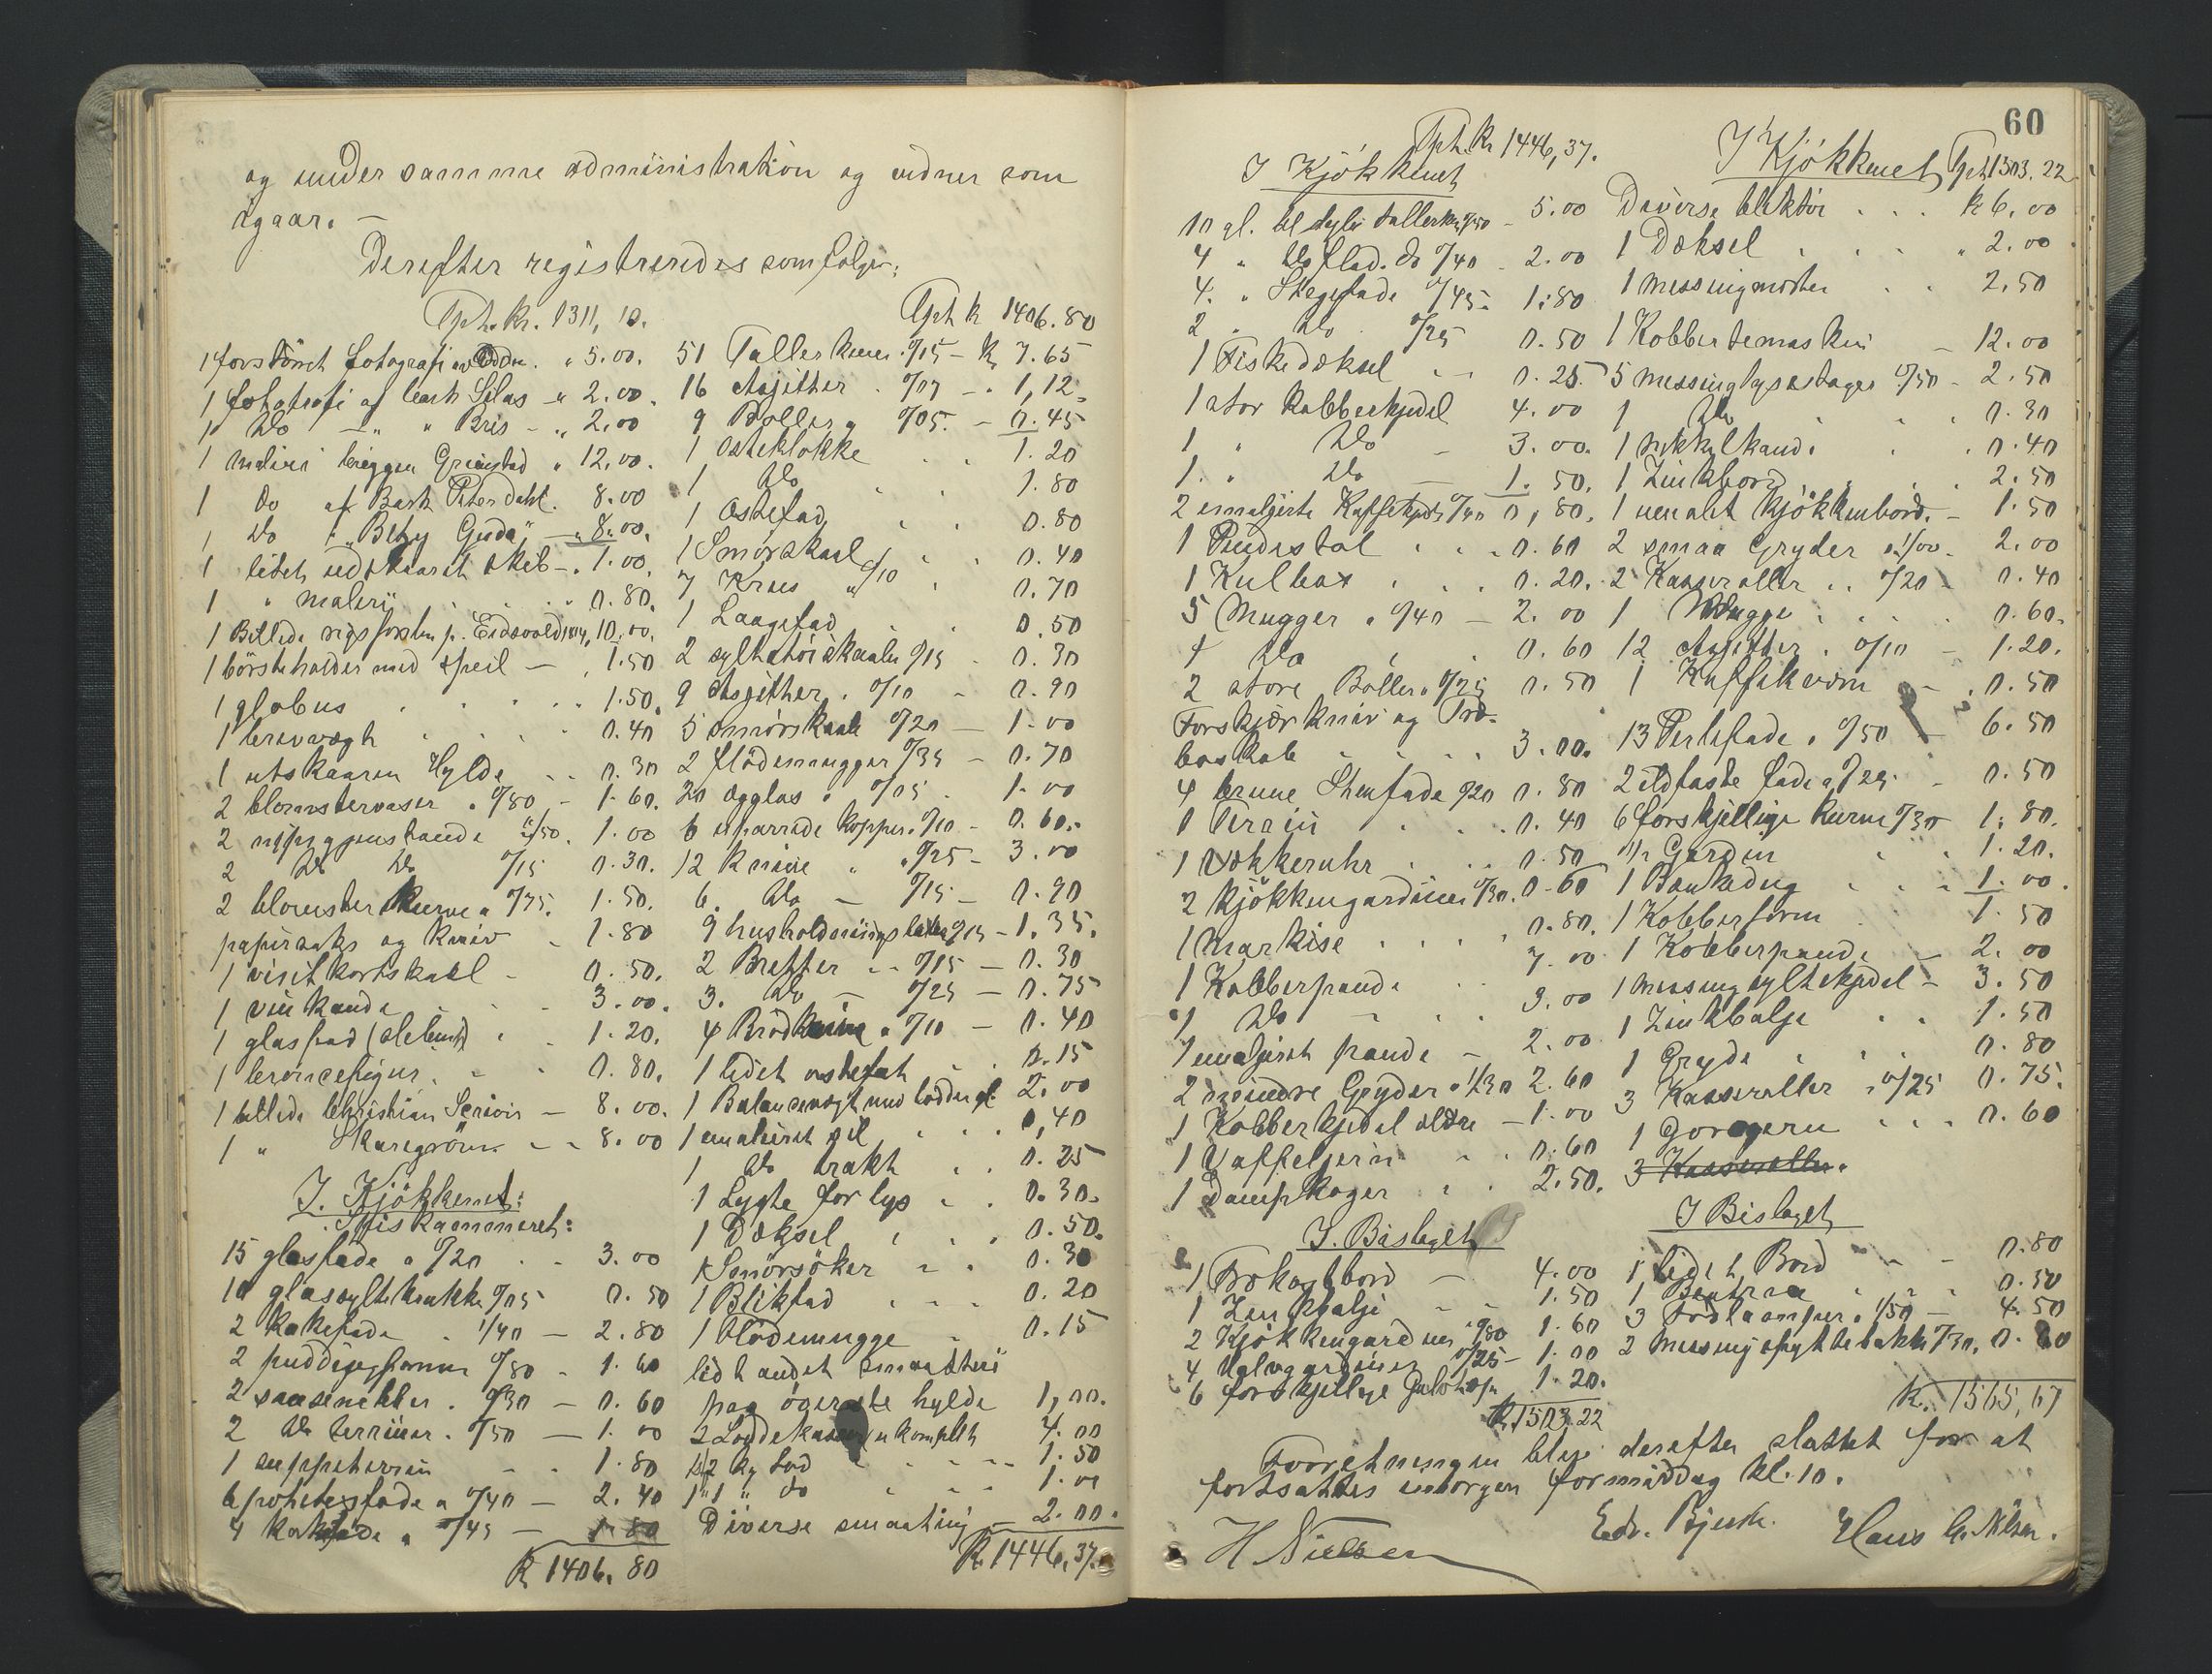 og under samme administration og vidner som
igaar. —
Derefter registreredes som følger:
Tph. kr. 1311, 10.
1 forstöret fotografi av Oddn. " 5.00.
1 fotografi af bark Silas - " 2.00.
1 Do — " " Bris - " 2.00
1 maleri briggen Grimstad " 12.00.
1 do af Bark Peter Dahl. 8.00
1 Do " "Betzy Guda" - " 8.00.
1 lidet udskaaret skib - " 1.00.
1 " maleri . . . " 0.80.
1 Billede rigsforsml. p. Eidsvold 1814, 10.00.
1 börsteholder med speil - " 1.50
1 globus . . . . 1.50.
1 brevvægt . . . . 0.40
1 utskaaren Hylde . . 0.30
2 blomstervaser a 0/80 - 1.60.
2 nipsgjenstande a 0/50. 1.00
2 Do Do 0/15 0.30.
2 blomsterkurve a 0/75. 1.50.
papirsaks og kniv - 1.80
1 visitkortskaal - 0.50.
1 vinkande . . . 3.00.
1 glasfad . . 1.20.
1 broncefigur. - . 0.80.
1 billede Christian Scriver - 8.00.
1 " . . 8.00
I. Kjökkenet:
Spiskammeret:
15 glasfade a 0/20 . . 3.00
10 glassyltekrukke 0/05 0.50
2 kakefade . 1/40 — 2.80
2 puddingformer 0/80 - 1.60
2 sausenebber . 0/30 — 0.60
2 Do terriner . 0/50 — 1.00
1 suppeterrin . . 1.80
6 potetesfade a 0/40 — 2.40
4 kakefade a 0/45 — 1.80
Kr 1406.80
Tph kr 1406.80
51 Tallerkener . 0/15 — Kr 7.65
16 Asjetter . 0/07 - . 1,12.
9 Boller a 0/05. — 0.45
1 osteklokke . . 1.20
1 Do . . 1.80
1 Ostefad . . 0.80
1 Smörskaal . . 0.40
7 Krus a 0/10 . 0.70
1 Laagefad . . 0.50
2 syltetöiskaaler 0/15 . 0.30
9 Asjetter . 0/10 - 0.90
5 smörskaale 0/20 — 1.00
2 flödemugger 0/35 - 0.70
20 ægglas a 0/05 . 1.00
6 uparrede kopper . 0/10 — 0.60.
12 knive " . 0/25 — 3.00
6. Do — 0/15 — 0.90
9 husholdnings 0/15 — 1.35.
2 Bretter - - 0/15 — 0.30
3. Do — 0/25 — 0.75
4 Brödknive a 0/10 — 0.40
1 lidet ostefat . . 0.15
1 Balansevægt med lodder gl. 2.00
1 emaljeret sil . . . 0,40
1 Do trakt . . 0.25
1 Lygte for lys . . 0.30.
1 Dæksel . . . 0.50.
1 Smörsöker . . 0.30
1 Blikfad . . . 0.20
1 blödemugge . 0.15
lidt andet smaatteri
paa hylde 1,00.
2 Loddekasser ukomplet 4.00
1/2 kg lod . . . 1.50
1 " 1 " do . . . 1.00
Diverse smaating - 2.00.
Kr 1446,37.
60
Tph. Kr 1446,37.
I Kjökkenet
10 gl. bl dybe tallerken 0/50 - 5.00
4 " Do flad. do 0/40 - 2.00
4. " Stegefade 0/45 - 1.80
2 " Do . 0/25 0.50
1 Fiskedæksel . - 0.25.
1 stor kobberkjedel 4.00
1 " Do — 3.00.
1. " Do — 1.50.
2 emaljerte Kaffekjedl 0/40 0,80.
1 Pudestol . . . 0.60
1 Kulbox . . . 0.20.
5 Mugger a 0/40 — 2.00
4 Do . 0.60
2 store Boller a 0/25 0.50
Forskjærkniv og
. . . . 3.00.
4 brune Stenfade 0/20 0.80
1 Terrin . . . 0.40
1 Vækkeruhr . . . 0.50
2 kjökkengardiner 0/30. 0.60
1 Markise . . . . 0.80.
1 Kobberpande . . 7.00
1 Do . . . 3.00
1 emaljeret pande - 2.00
2 mindre Gryder a 1/30 2.60
1 Kobberkjedel ældre - 1.00
1 Vaffeljern . . 0.60
1 Dampkoger . . 2.50.
I. Bislaget
1 Frokostbord — 4.00
1 Zinkbalje . . 1.50
2 Kjökkengardiner a 0/80 1.60
4 Halvgardiner 0/25 - 1.00
6 forskjellige 1.20.
Kr. 1503.22
I Kjökkenet Tph 1503.22
Diverse bliktöi . . . kr 6.00
1 Dæksel . . . . " 2.00
1 Messingmorter . . 2.50
1 Kobber temaskin — 12.00
5 messinglysestager 0/50 - 2.50
1 Do . . 0.30
1 nykkelkande . . 0.40
1 Zinkbord . . . 2.50
1 umalet kjökkenbord. - 1.50
2 smaa Gryder a 1/00. 2.00
2 Kasseroller . . 0/20 - 0.40
1 Mugge . . . . 0.60.
12 Asjetter . 0/10 — 1.20.
1 Kaffekværn — . 0.50
13 Perlefade . 0/50 — 6.50
2 ildfaste fade a 0/25 - 0.50
6 forskjellige kurve 0/30 1.80.
1/2 Gardin . . 1.20.
1 Bænkedug . . . 1.00.
1 Kobberform . 1.50
1 Kobberpande — 2.00
1 messing syltekjedel — 3.50
1 Zinkbalje . . 1.50
1 Gryde . . . 0.80
3 Kasseroller a 0/25 0.75.
1 Gorojern . . . 0.60
3 Kasseroller.
I Bislaget
1 lidet Bord - - 0.80
1 Bentræ . . 0.50
3 a 1/50 — 4.50
2 Messing spyttebakker 0/30. 0.60
Kr. 1565,67
Forretningen blev derefter sluttet for at
fortsættes imorgen formiddag kl. 10.
H Nielsen
Edv. Bjerk.
Hans G. Nilsen.